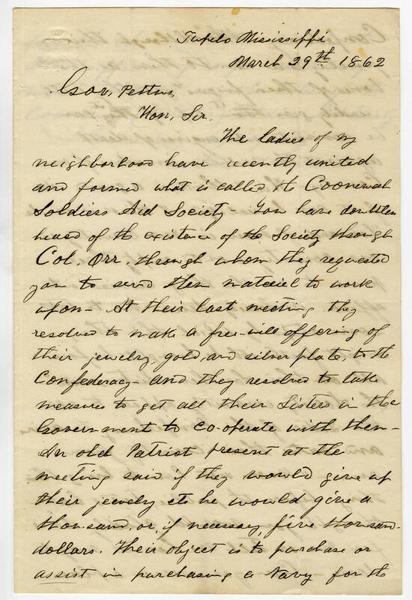 Tupelo Mississippi
March 29th 1862
Gov, Pettus,
Hon, Sir
The ladies of my
neighborhood have recently united
and formed what is called the Coonewah
Soldiers Aid Society - You have doubtless
heard of the existence of the Society through
Col. Orr, through whom they requested
you to send them material to work
upon - At their last meeting they
resolved to make a free-will offering of
their jewelry, gold, and silver plate, to the
Confederacy - and they resolved to take
measures to get all their Sisters in the
Government to co-operate with them -
An old Patriot present at the
meeting said if they would give up
their jewelry etc he would give a
thousand, or, if necessary, five thousand
dollars. Their object is to purchase or
assist in purchasing a Navy for the